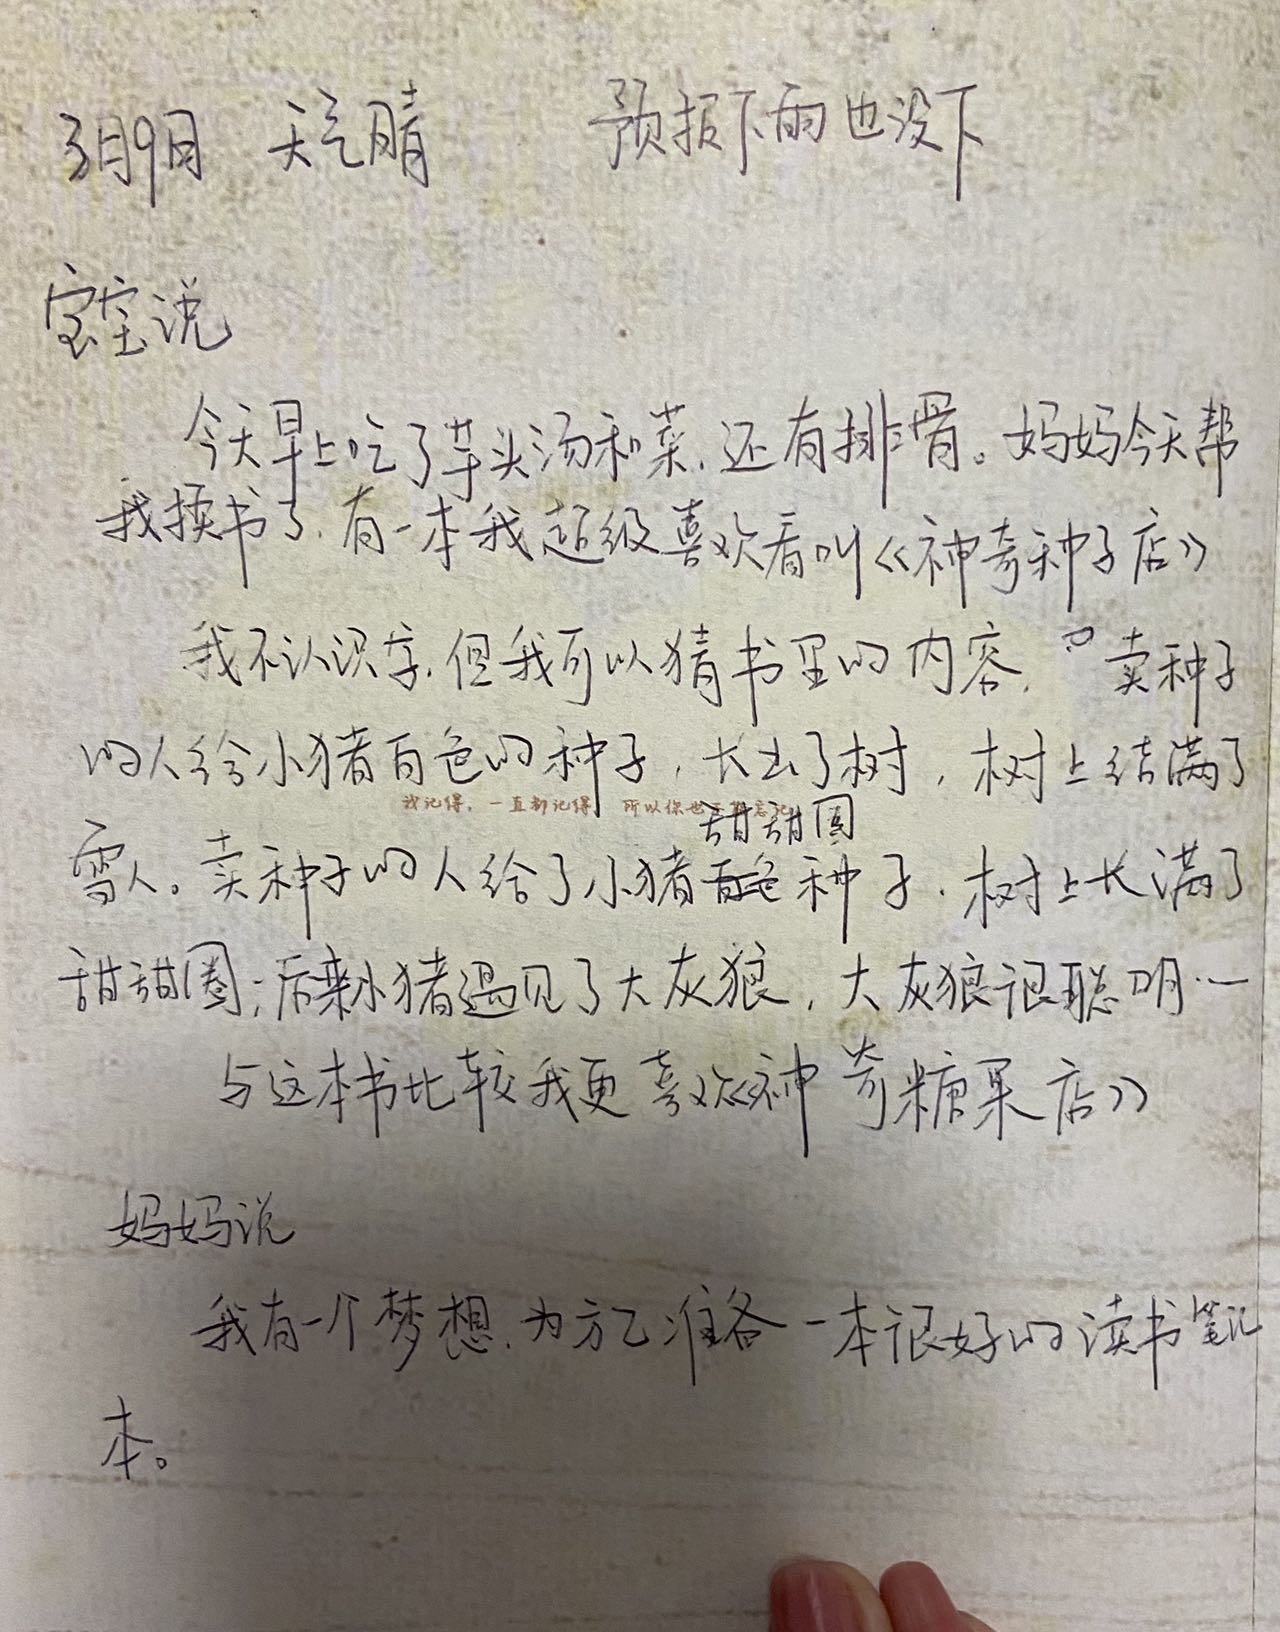 3月9日 天气晴 预报下雨也没下
宝宝说
今天早上吃了芋头汤和菜，还有排骨。妈妈今天帮
我换书了，有一本我超级喜欢看叫《神奇种子店》
我不认识字，但我可以猜书里的内容，卖种子
的人给小猪白色的种子，长出了树，树上结满了
我记得，一直都记得 所以你也
甜甜圈
雪人。卖种子的人给了小猪种子，树上长满了
甜甜圈；后来小猪遇见了大灰狼，大灰狼很聪明……
与这本书比较我更喜欢《神奇糖果店》
妈妈说
我有一个梦想，为方己准备一本很好的读书笔记
本。